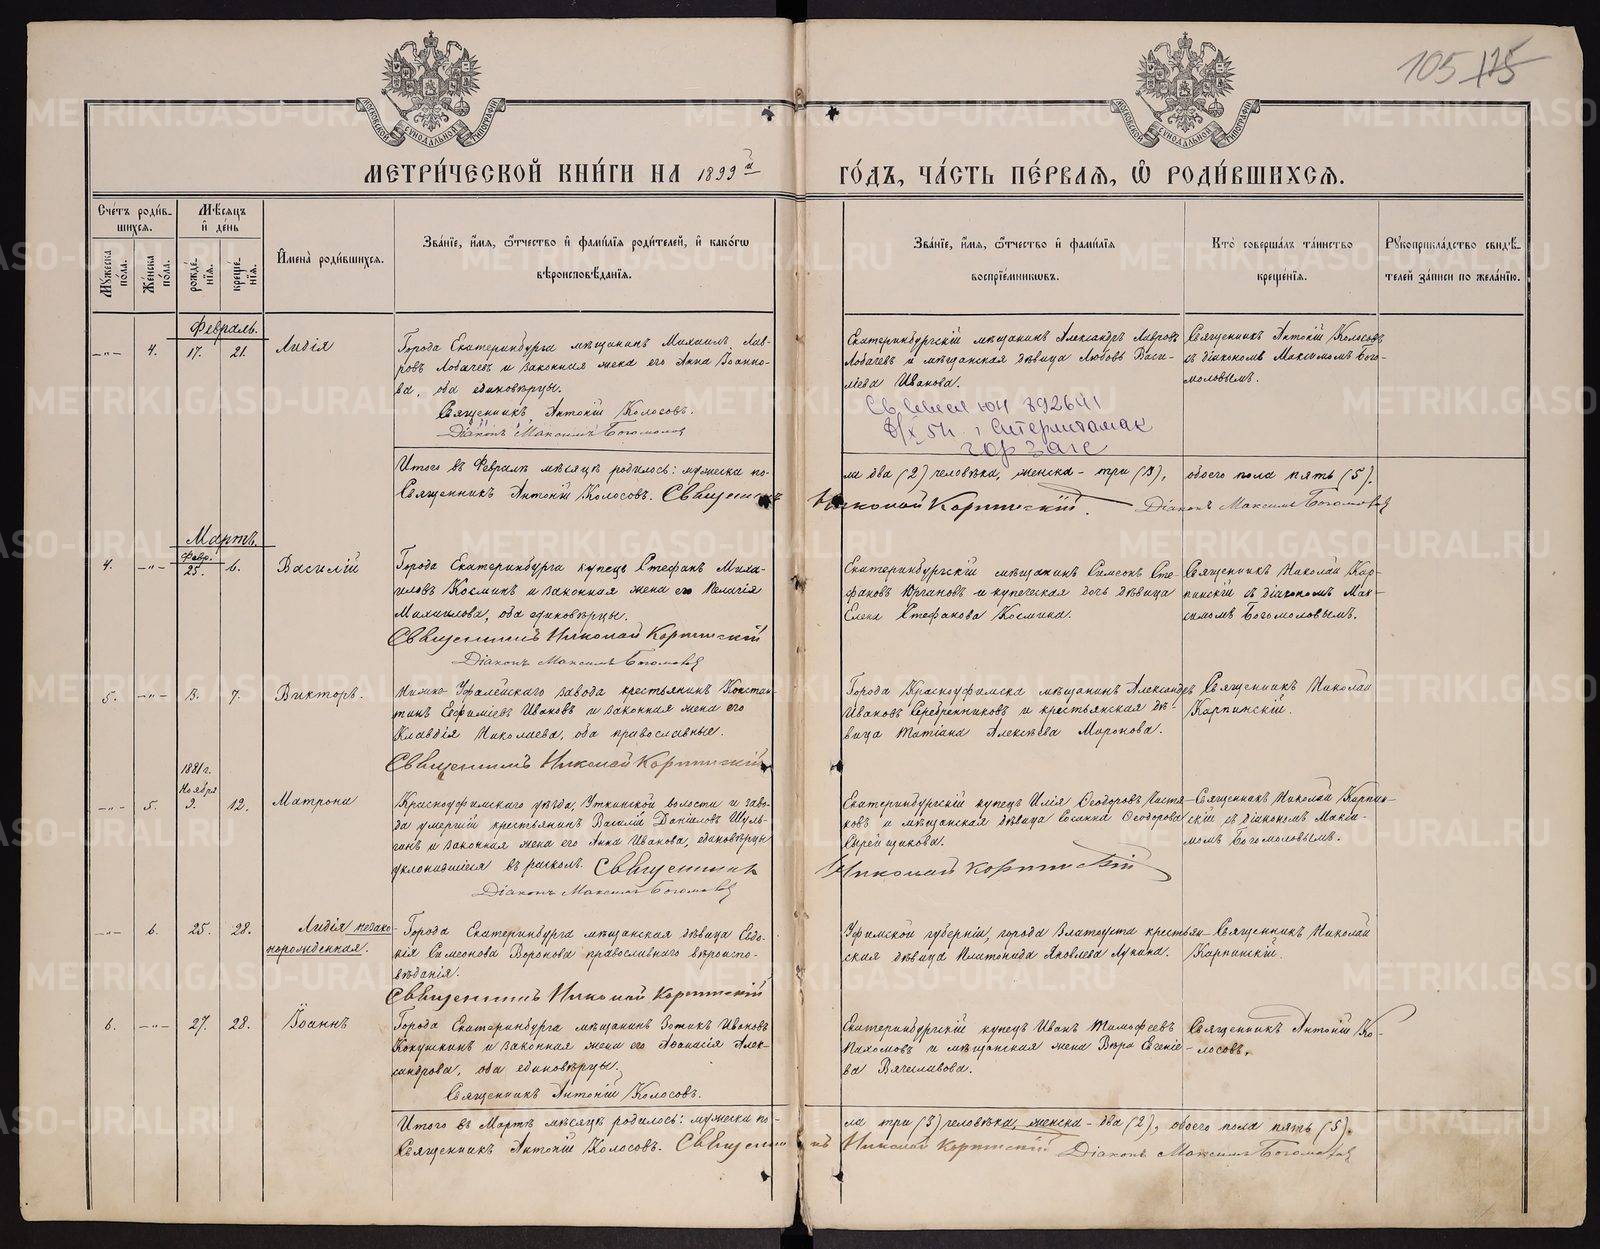 105 115
МОСКОВСКОЙ СУНОДАЛЬНОЙ ТИПОГРАФІИ
МОСКОВСКОЙ СУНОДАЛЬНОЙ ТИПОГРАФІИ
МЕТРИ́ЧЕСКОЙ КНИ́ГИ НА 1899й ГО́ДЪ, ЧА́СТЬ ПЕ́РВАѦ, Ѡ РОДИ́ВШИХСѦ.
Сче́тъ роди́в-
шихсѧ.
Мѣ́сѧцъ
и҆ де́нь
Мꙋжеска
по́ла.
Же́нска
по́ла.
рожде́-
нїѧ.
креще́-
нїѧ.
И҆мена̀ роди́вшихсѧ.
Зва́нїе, и҆́мѧ, ѻ҆́тчество и҆ фами́лїѧ роди́телей, и҆ како́гѡ
вѣроисповѣ́данїѧ.
Зва́нїе, и҆́мѧ, ѻ҆́тчество и҆ фами́лїѧ
воспрїе́мникѡвъ.
Кто̀ соверша́лъ та́инство
креще́нїѧ.
Рꙋкоприкла́дство свидѣ́-
телей за́писи по жела́нїю.
Февраль.
—„— 4. 17. 21. Лидія
Города Екатеринбурга мѣщанинъ Михаилъ Лав-
ровъ Лобачевъ и законная жена его Анна Іоанно-
ва, оба единовѣрцы.
Священникъ Антоній Колосовъ.
Діаконъ Максимъ Богомолов
Екатеринбургскій мѣщанинъ Александръ Лавровъ
Лобачевъ и мѣщанская дѣвица Любовь Васи-
ліева Иванова.
Священникъ Антоній Колосовъ
съ діакономъ Максимомъ Бого-
моловымъ.
892641
г Стерлитамак
гор загс
Итого въ Февралѣ мѣсяцѣ родилось: мужеска по-
ла два (2) человѣка, женска - три (3), обоего пола пять (5).
Священникъ Антоній Колосовъ. Священникъ Николай Карпинскій. Діаконъ Максимъ Богомолов
Мартъ.
4. —„— Февр. 25. 6. Василій
Города Екатеринбурга купецъ Стефанъ Миха-
иловъ Космикъ и законная жена его Пелагія
Михаилова, оба единовѣрцы.
Священникъ Николай Карпинскій
Діаконъ Максимъ Богомолов
Екатеринбургскій мѣщанинъ Симеонъ Сте-
фановъ Юргановъ и купеческая дочь дѣвица
Елена Стефанова Космина.
Священникъ Николай Кар-
пинскій съ діакономъ Мак-
симомъ Богомоловымъ.
5. —„— 3. 7. Викторъ.
Нижне-Уфалейскаго завода крестьянинъ Констан-
тинъ Евфиміевъ Ивановъ и законная жена его
Клавдія Николаева, оба православные.
Священникъ Николай Карпинскій
Города Красноуфимска мѣщанинъ Александръ
Ивановъ Серебренниковъ и крестьянская дѣ-
вица Татіана Алексѣева Миронова.
Священникъ Николай
Карпинскій.
1881 г.
Ноября
—„— 5. 9. 12. Матрона
Красноуфимскаго уѣзда, Уткинской волости и заво-
да умершій крестьянинъ Василій Даніиловъ Шуль-
гинъ и законная жена его Анна Иванова, единовѣрцы
уклонившіеся въ расколъ. Священникъ
Николай Карпинскій
Діаконъ Максимъ Богомолов
Екатеринбургскій купецъ Илія Ѳеодоровъ
ковъ и мѣщанская дѣвица Ѳеодорова
Священникъ Николай Карпин-
скій съ діакономъ Макси-
момъ Богомоловымъ.
—„— 6. 25. 28. Лидія незако-
норожденная.
Города Екатеринбурга мѣщанская дѣвица Евдо-
кія Симеонова Воронова православнаго вѣроиспо-
вѣданія.
Священникъ Николай Карпинскій
Уфимской губерніи, города Златоуста крестьян-
ская дѣвица Платонида Яковлева Лукина.
Священникъ Николай
Карпинскій.
6. —„— 27. 28. Іоаннъ
Города Екатеринбурга мѣщанинъ Зотикъ Ивановъ
Кокушкинъ и законная жена его Аѳанасія Алек-
сандрова, оба единовѣрцы.
Священникъ Антоній Колосовъ.
Екатеринбургскій купецъ Иванъ Тимофеевъ
Пахомовъ и мѣщанская жена Вѣра Евгеніе-
ва Вячеславова.
Священникъ Антоній Ко-
лосовъ.
Итого въ Мартѣ мѣсяцѣ родилось: мужеска по-
ла три (3) человѣка, женска - два (2), обоего пола пять (5).
Священникъ Антоній Колосовъ. Священникъ Николай Карпинскій Діаконъ Максимъ Богомолов